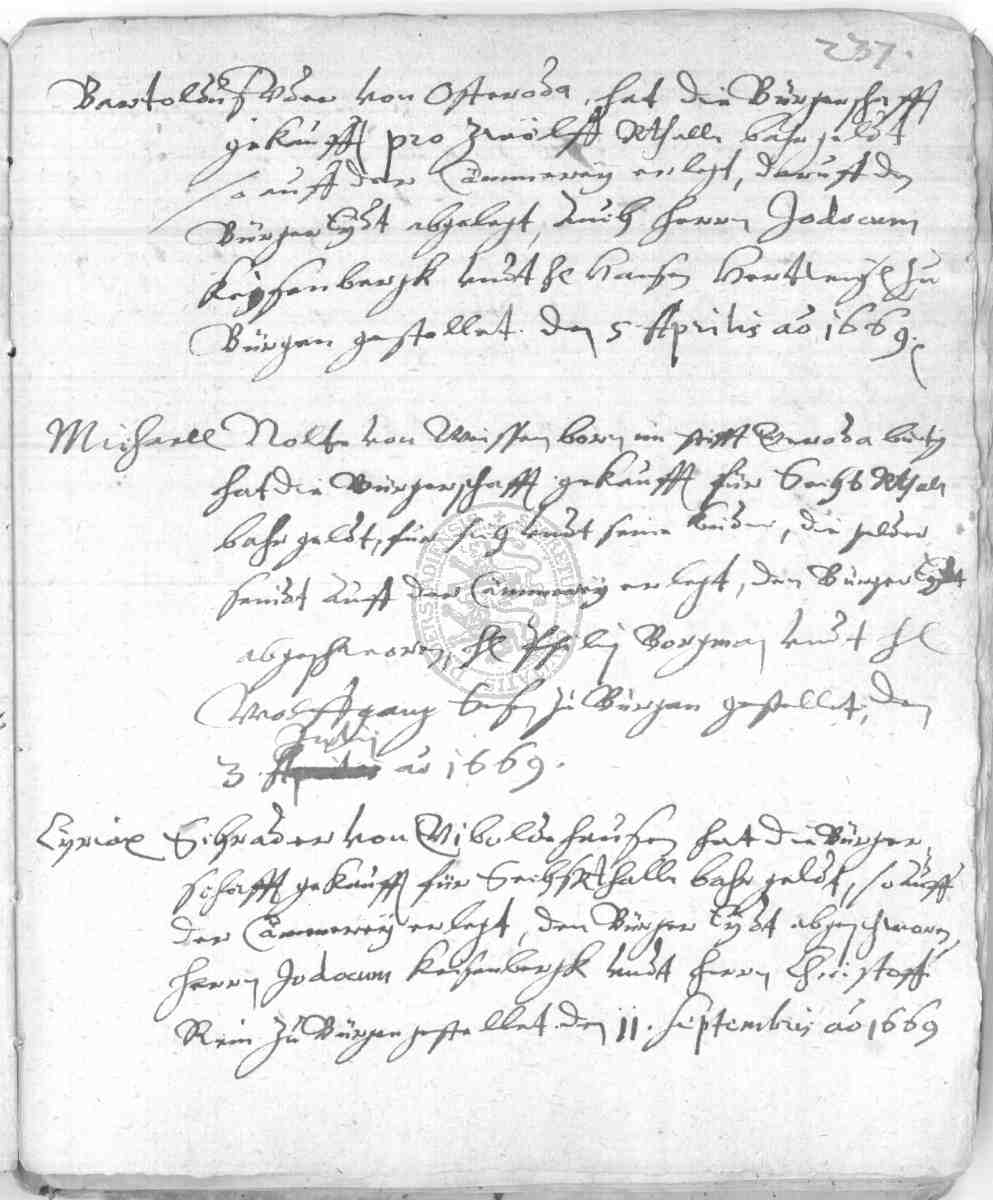 237.
Bartoldus von Osteroda, hat die Bürgerschafft
gekaufft pro Zwölff Rthalle bahr geldt
so auff der Cämmerey erlegt, daruff den
Bürger Eydt abgelegt, auch herrn Jodocum
Keysenbergk undt hl Hansen zu
Bürgen gestellet. den 5 Aprilis ao 1669.
Michaell Nolte von Weissenborn im stifft
hat die Bürgerschafft gekaufft für Sechs Rthall
bahr geldt, für sich undt seine , die gelder
seindt auff der Cämmerey erlegt, den Bürger Eydt
abgeschworen, hl Borgman undt hl
Wolffgang zu Bürgen gestellet, den
3 ao 1669.
Cyriax Schrader von Wiboldehausen hat die Bürger
schafft gekaufft für Sechs Rthalle bahr geldt, so auff
der Cämmerey erlegt, den Bürger Eydt abgeschworen,
herrn Jodocum Keisenbergk undt herrn Christoff
Rein zu Bürgen gestellet. den 11. Septembris ao 1669